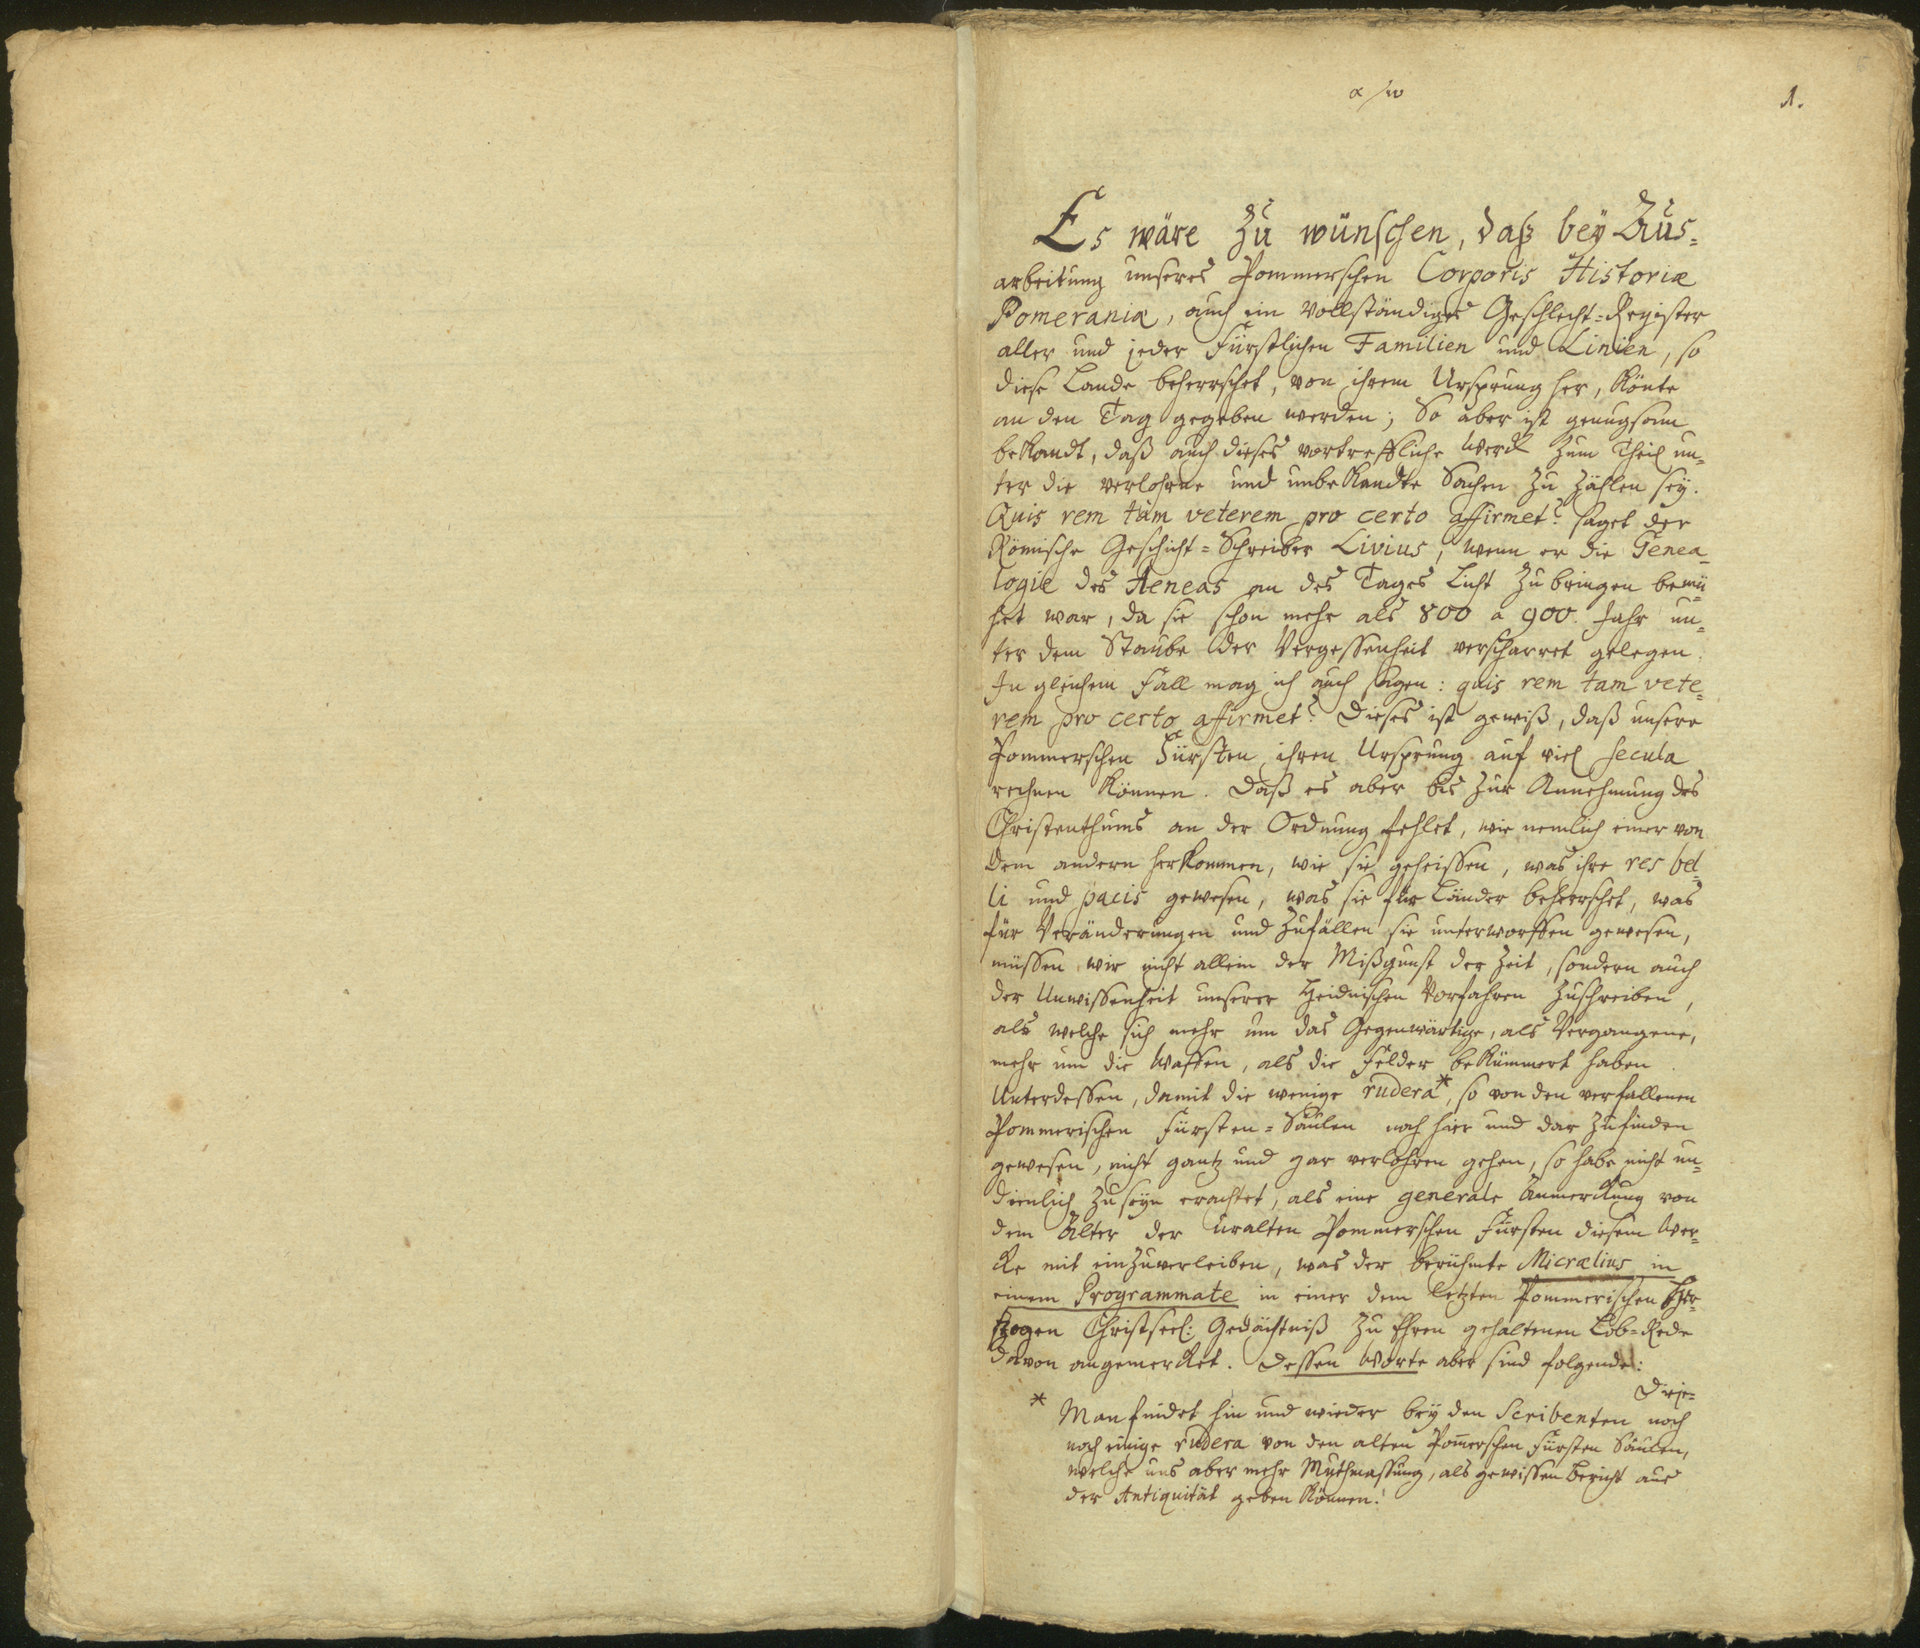 α/ω
1.
Es wäre zu wünschen, daß bey Aus-
arbeitung unseres Pommerschen Corporis Historiæ
Pomeraniæ, auch ein vollständiges Geschlecht-Register
aller und jeder Fürstlichen Familien und Linien, so
diese Lande beherrschet, von ihrem Ursprung her, könte
an den Tag gegeben werden; So aber ist genugsam
bekandt, daß auch dieses vortreffliche Werck zum Theil un-
ter die verlohrne und unbekandte Sachen zu zählen sey.
Quis rem tàm veterem pro certo affirmet? saget der
Römische Geschicht-Schreiber Livius, wenn er die Genea-
logie des Aeneas an des Tages Licht zu bringen bemü-
het war, da sie schon mehr als 800 a 900. Jahr un-
ter dem Staube der Vergessenheit verscharret gelegen.
In gleichem Fall mag ich auch sagen: quis rem tam vete-
rem pro certo affirmet? Dieses ist gewiß, daß unsere
Pommerschen Fürsten ihren Ursprung auf viel secula
rechnen können. Daß es aber bis zur Annehmung des
Christenthums an der Ordnung fehlet, wie nemlich einer von
dem andern herkommen, wie sie geheissen, was ihre res bel-
li und pacis gewesen, was sie für Länder beherrschet, was
für Veränderungen und Zufällen sie unterworffen gewesen,
müssen wir nicht allein der Mißgunst der Zeit, sondern auch
der Unwissenheit unserer Heidnischen Vorfahren zuschreiben,
als welche sich mehr um das Gegenwärtige, als Vergangene,
mehr um die Waffen, als die Felder bekümmert haben.
Unterdessen, damit die wenige rudera*, so von den verfallenen
Pommerischen Fürsten-Säulen noch hier und dar zufinden
gewesen, nicht gantz und gar verlohren gehen, so habe nicht un-
dienlich zu seyn erachtet, als eine generale Anmerckung von
dem Alter der uralten Pommerschen Fürsten diesem Wer-
cke mit einzuverleiben, was der berühmte Micrælius in
einem Programmate in einer dem letzten Pommerischen Her-
zogen Christseel: Gedächtniß zu Ehren gehaltenen Lob-Rede
davon angemercket. Dessen Worte aber sind folgende:
Dieje-
* Man findet hin und wieder bey den Scribenten noch
noch einige rudera von den alten Pom̄erschen Fürsten Säulen,
welche uns aber mehr Muthmassung, als gewissen Bericht aus
der Antiquität geben können.